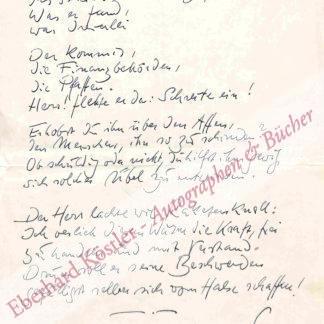 Was er fand,
war
Der Kommiß,
die Finanzbehörden,
die Pfaffen.
Herr! flehte er da: Schreite ein!
Erhobst Du ihn über den Affen,
den Menschen, ihn so zu schinden?
Ob schuldig oder nicht, Du hilfst ihm gewiß
sich solchem Übel zu
Der Herr lachte wie
Ich verlieh dem die Kraft, frei
zu handeln und mit Verstand.
Drum soll er seine Beschwerden
selber sich vom Halse schaffen!
Eberhard Köstler Autographen & Bücher